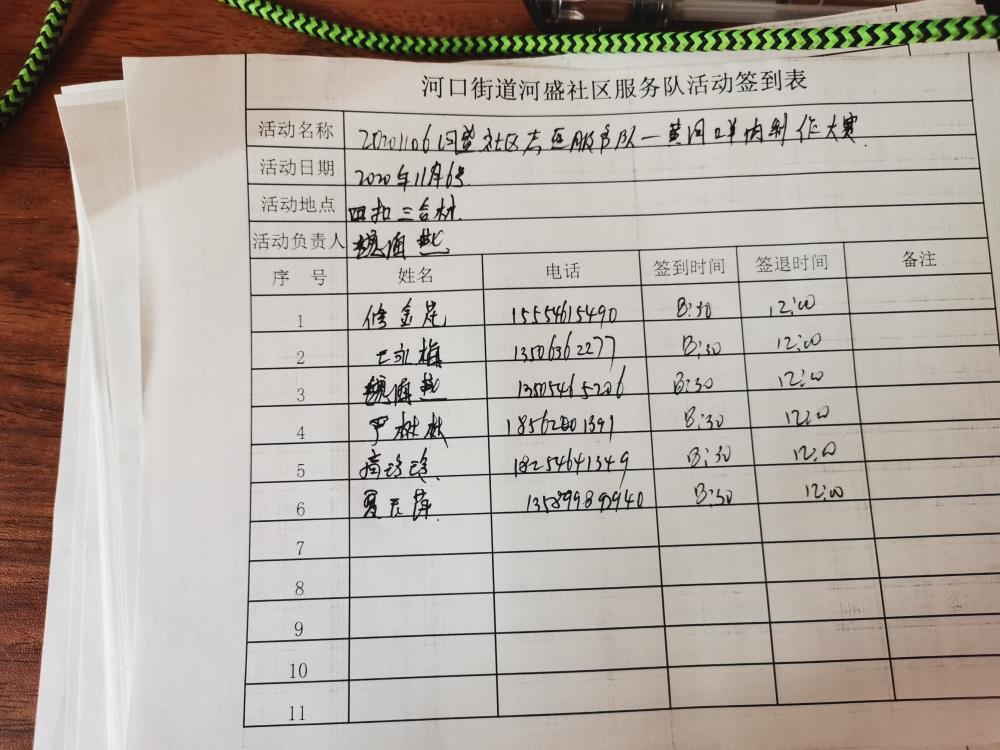 河口街道河盛社区服务队活动签到表
活动名称 20201106河盛社区志愿服务队—黄河口羊肉制作大赛
活动日期 2020年11月6号
活动地点 四扣三合村
活动负责人 魏海燕
序 号 姓名 电话 签到时间 签退时间 备注
1 修金 15554615490 8:30 12:00
2 王永梅 13506362277 8:30 12:00
3 魏海燕 13505465206 8:30 12:00
4 尹树林 8:30 12:00
5 18254641349 8:30 12:00
6 萍 13589989940 8:30 12:00
7
8
9
10
11